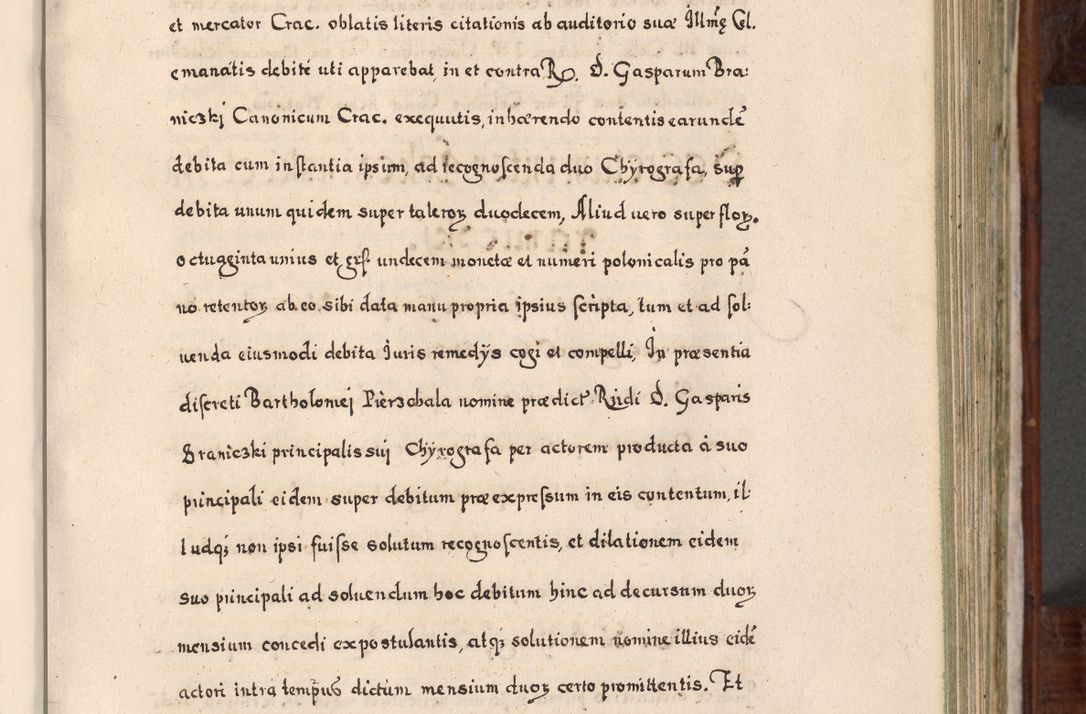 et mercator Crac. oblatis literis citationis ab auditorio suæ Illmę Cl.
emanatis debitè uti apparebat in et contra R. D. Gasparum Bra:
niczki Canonicum Crac. exequutis, inhærendo contentis earundē
debita cum instantia ipsum, ad recognoscenda duo Chyrografa, sup
debita unum quidem super taleroꝝ duodecem, Aliud uero super floꝝ.
octuaginta unius et grſ undecem monetæ et numeri polonicalis pro pā
no retentoꝝ ab eo sibi data manu propria ipsius scripta, tum et ad sol:
uenda eiusmodi debita Iuris remedÿs cogi et compelli, In præsentia
discreti Bartholomej Pierzchala nomine prædict Rndi D. Gasparis
Braniczki principalis sui Chyrografa per actorem producta à suo
principali eidem super debitum præexpressum in eis contentum, il:
ludqꝫ non ipsi fuisse solutum recognoscentis, et dilationem eidem
suo principali ad soluendum hoc debitum hinc ad decursum duoꝝ
mensium concedi expostulantis, atqꝫ solutionem nomine illius eidē
actori intra tempus dictum mensium duoꝝ certo promittentis. Et